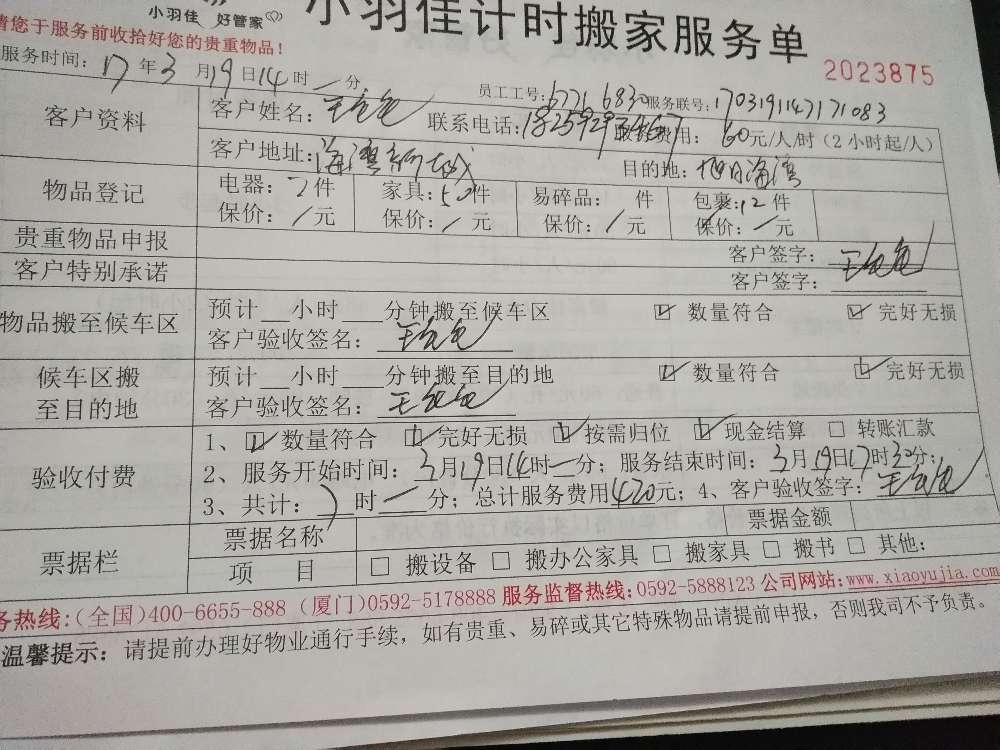 小羽佳 好管家
小羽佳计时搬家服务单
请您于服务前收拾好您的贵重物品！
2023875
服务时间：17年3月19日14时一分 员工工号：6771 6830 服务联号：170319114717 1083
客户资料
客户姓名： 联系电话： 费用：60元/人/时（2小时起/人）
客户地址：海湾新城 目的地：旭日海湾
物品登记
电器：7件 家具：50件 易碎品： 件 包裹：12件
保价：/元 保价：/元 保价：/元 保价：/元
贵重物品申报 客户签字：
客户特别承诺 客户签字：
物品搬至候车区
预计__小时___分钟搬至候车区 ☑ 数量符合 ☑ 完好无损
客户验收签名：
候车区搬至目的地
预计__小时___分钟搬至目的地 ☑ 数量符合 ☑ 完好无损
客户验收签名：
验收付费
1、☑ 数量符合 ☑ 完好无损 ☑ 按需归位 ☑ 现金结算 □ 转账汇款
2、服务开始时间：3月19日14时一分；服务结束时间：3月19日17时30分；
3、共计： 时一分；总计服务费用420元；4、客户验收签字：
票据栏
票据名称 票据金额
项 目 □ 搬设备 □ 搬办公家具 □ 搬家具 □ 搬书 □ 其他：
务热线：(全国)400-6655-888 (厦门)0592-5178888 服务监督热线：0592-5888123 公司网站：www.xiaoyujia.com
温馨提示：请提前办理好物业通行手续，如有贵重、易碎或其它特殊物品请提前申报，否则我司不予负责。